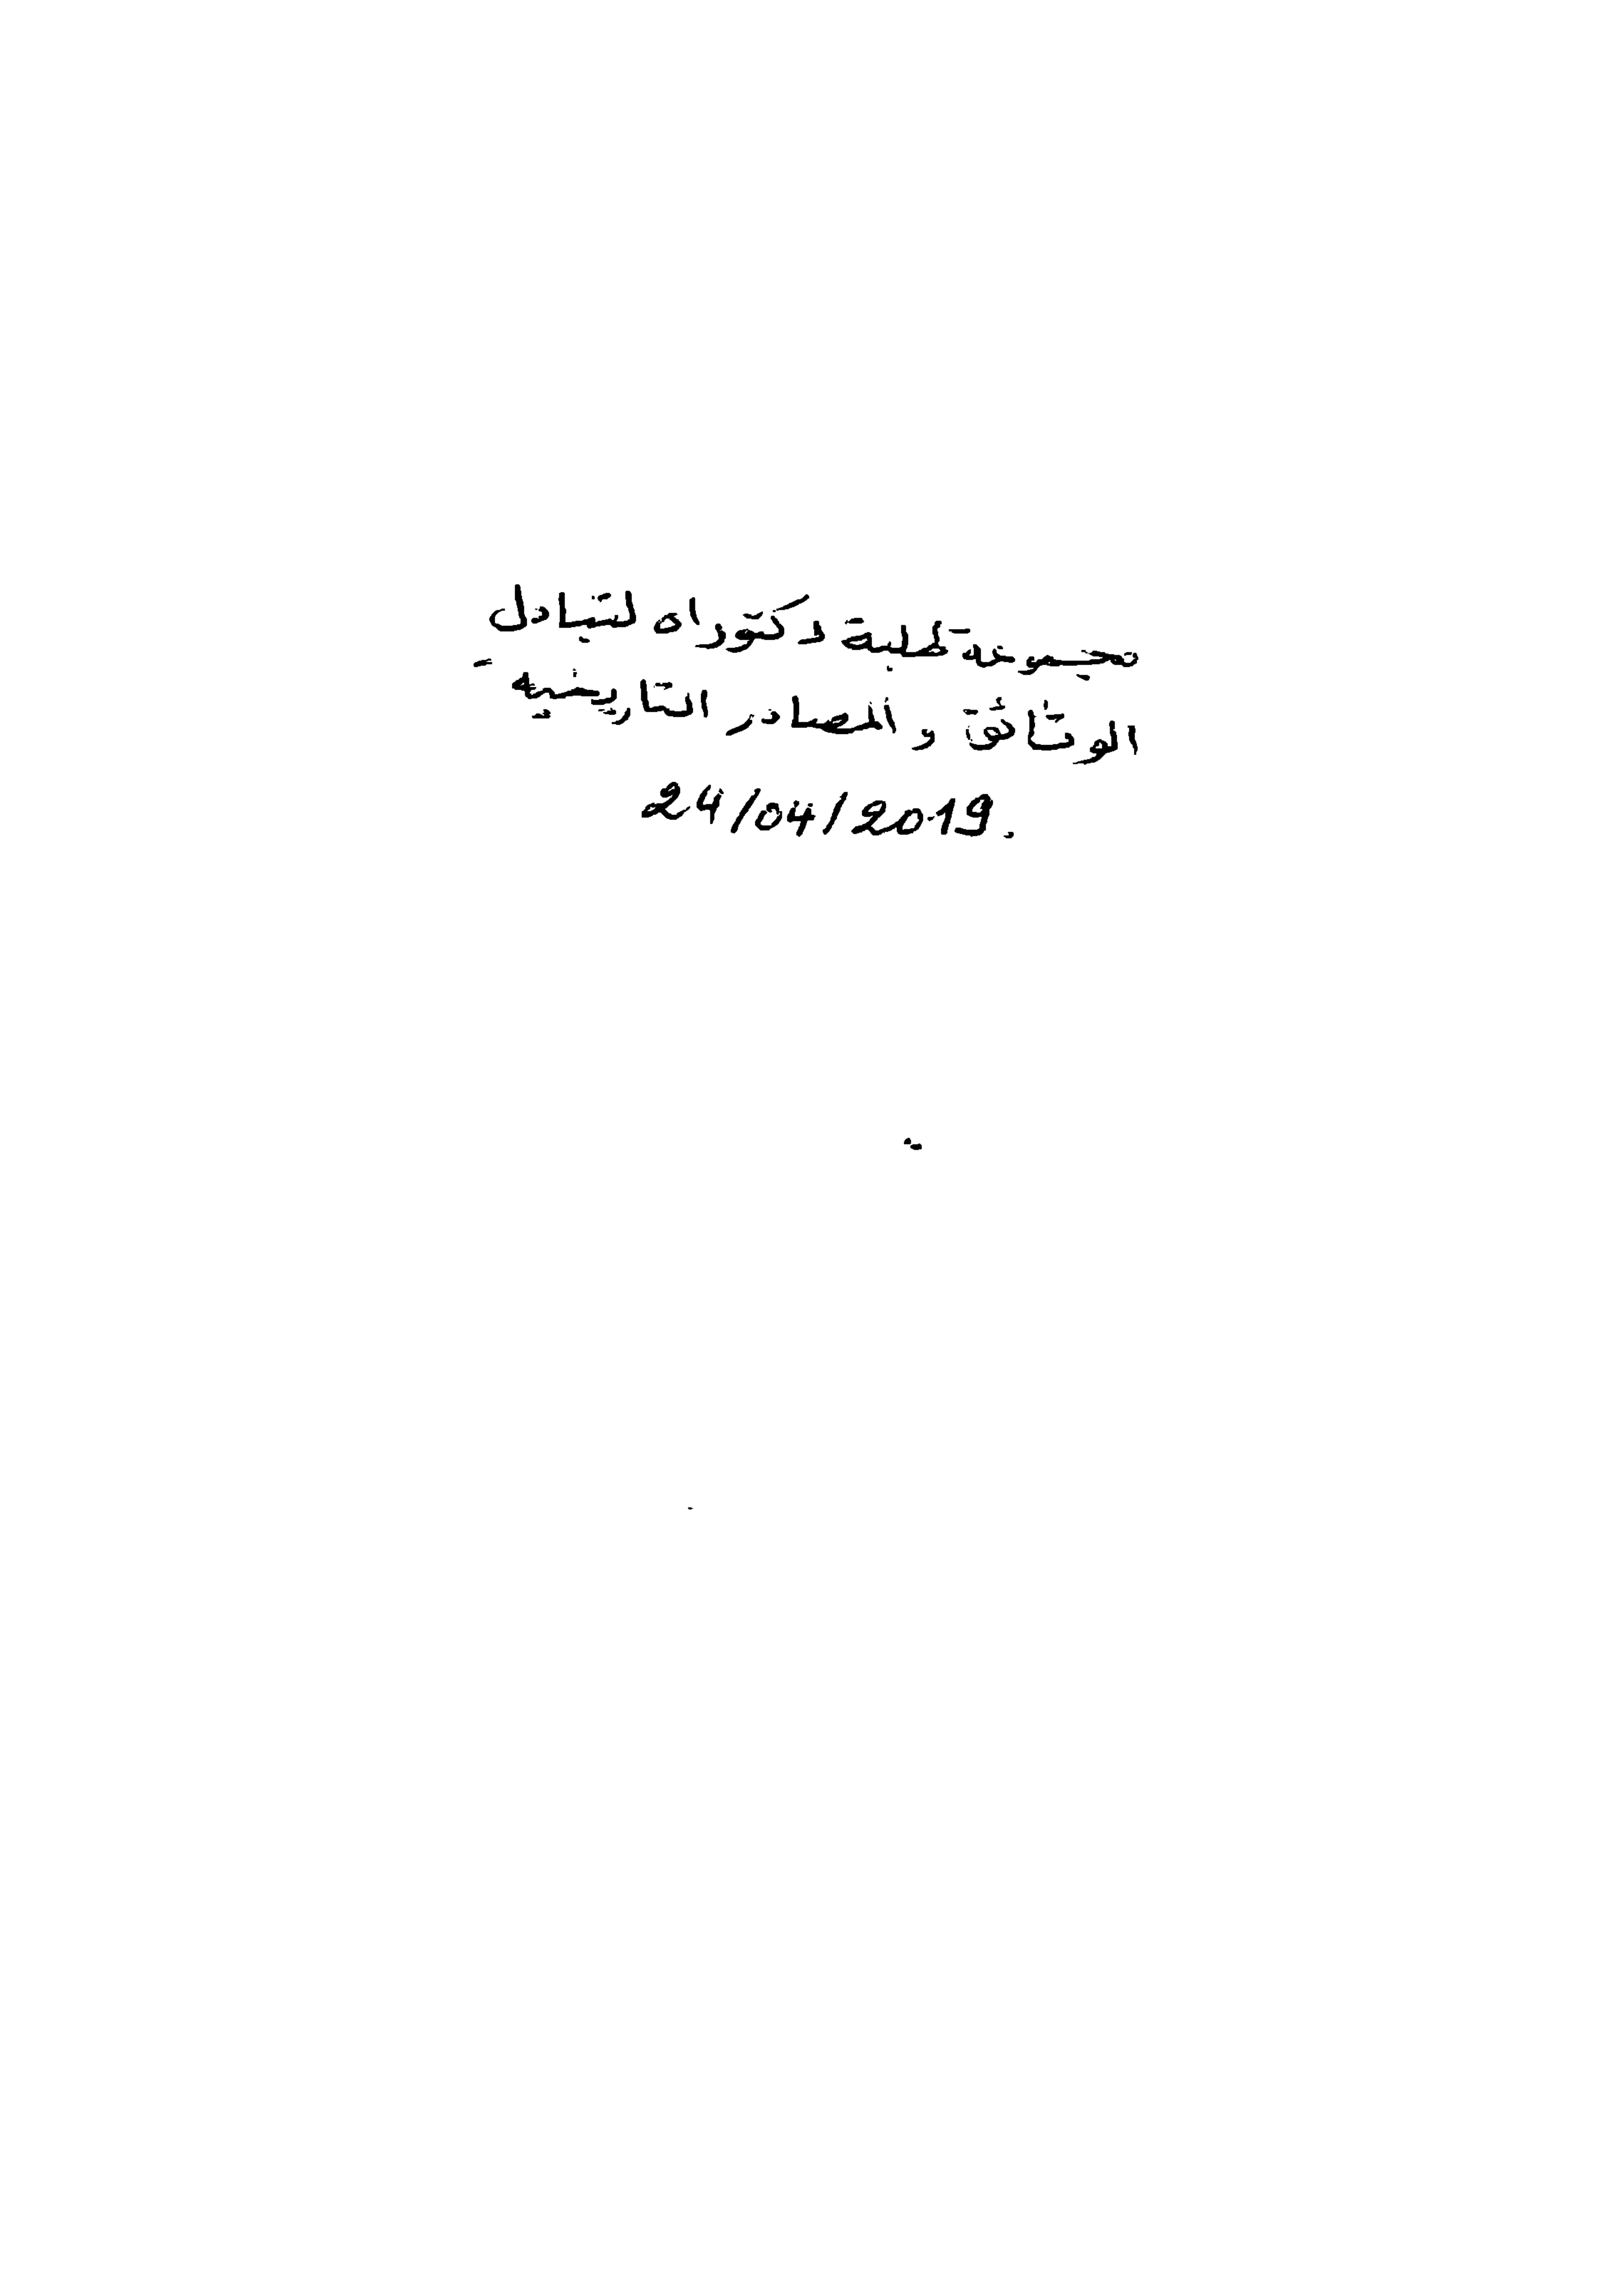 مجموعة طلبة دكتوراه لتبادل
الوثائق و المصادر التاريخية
24/04/2019.